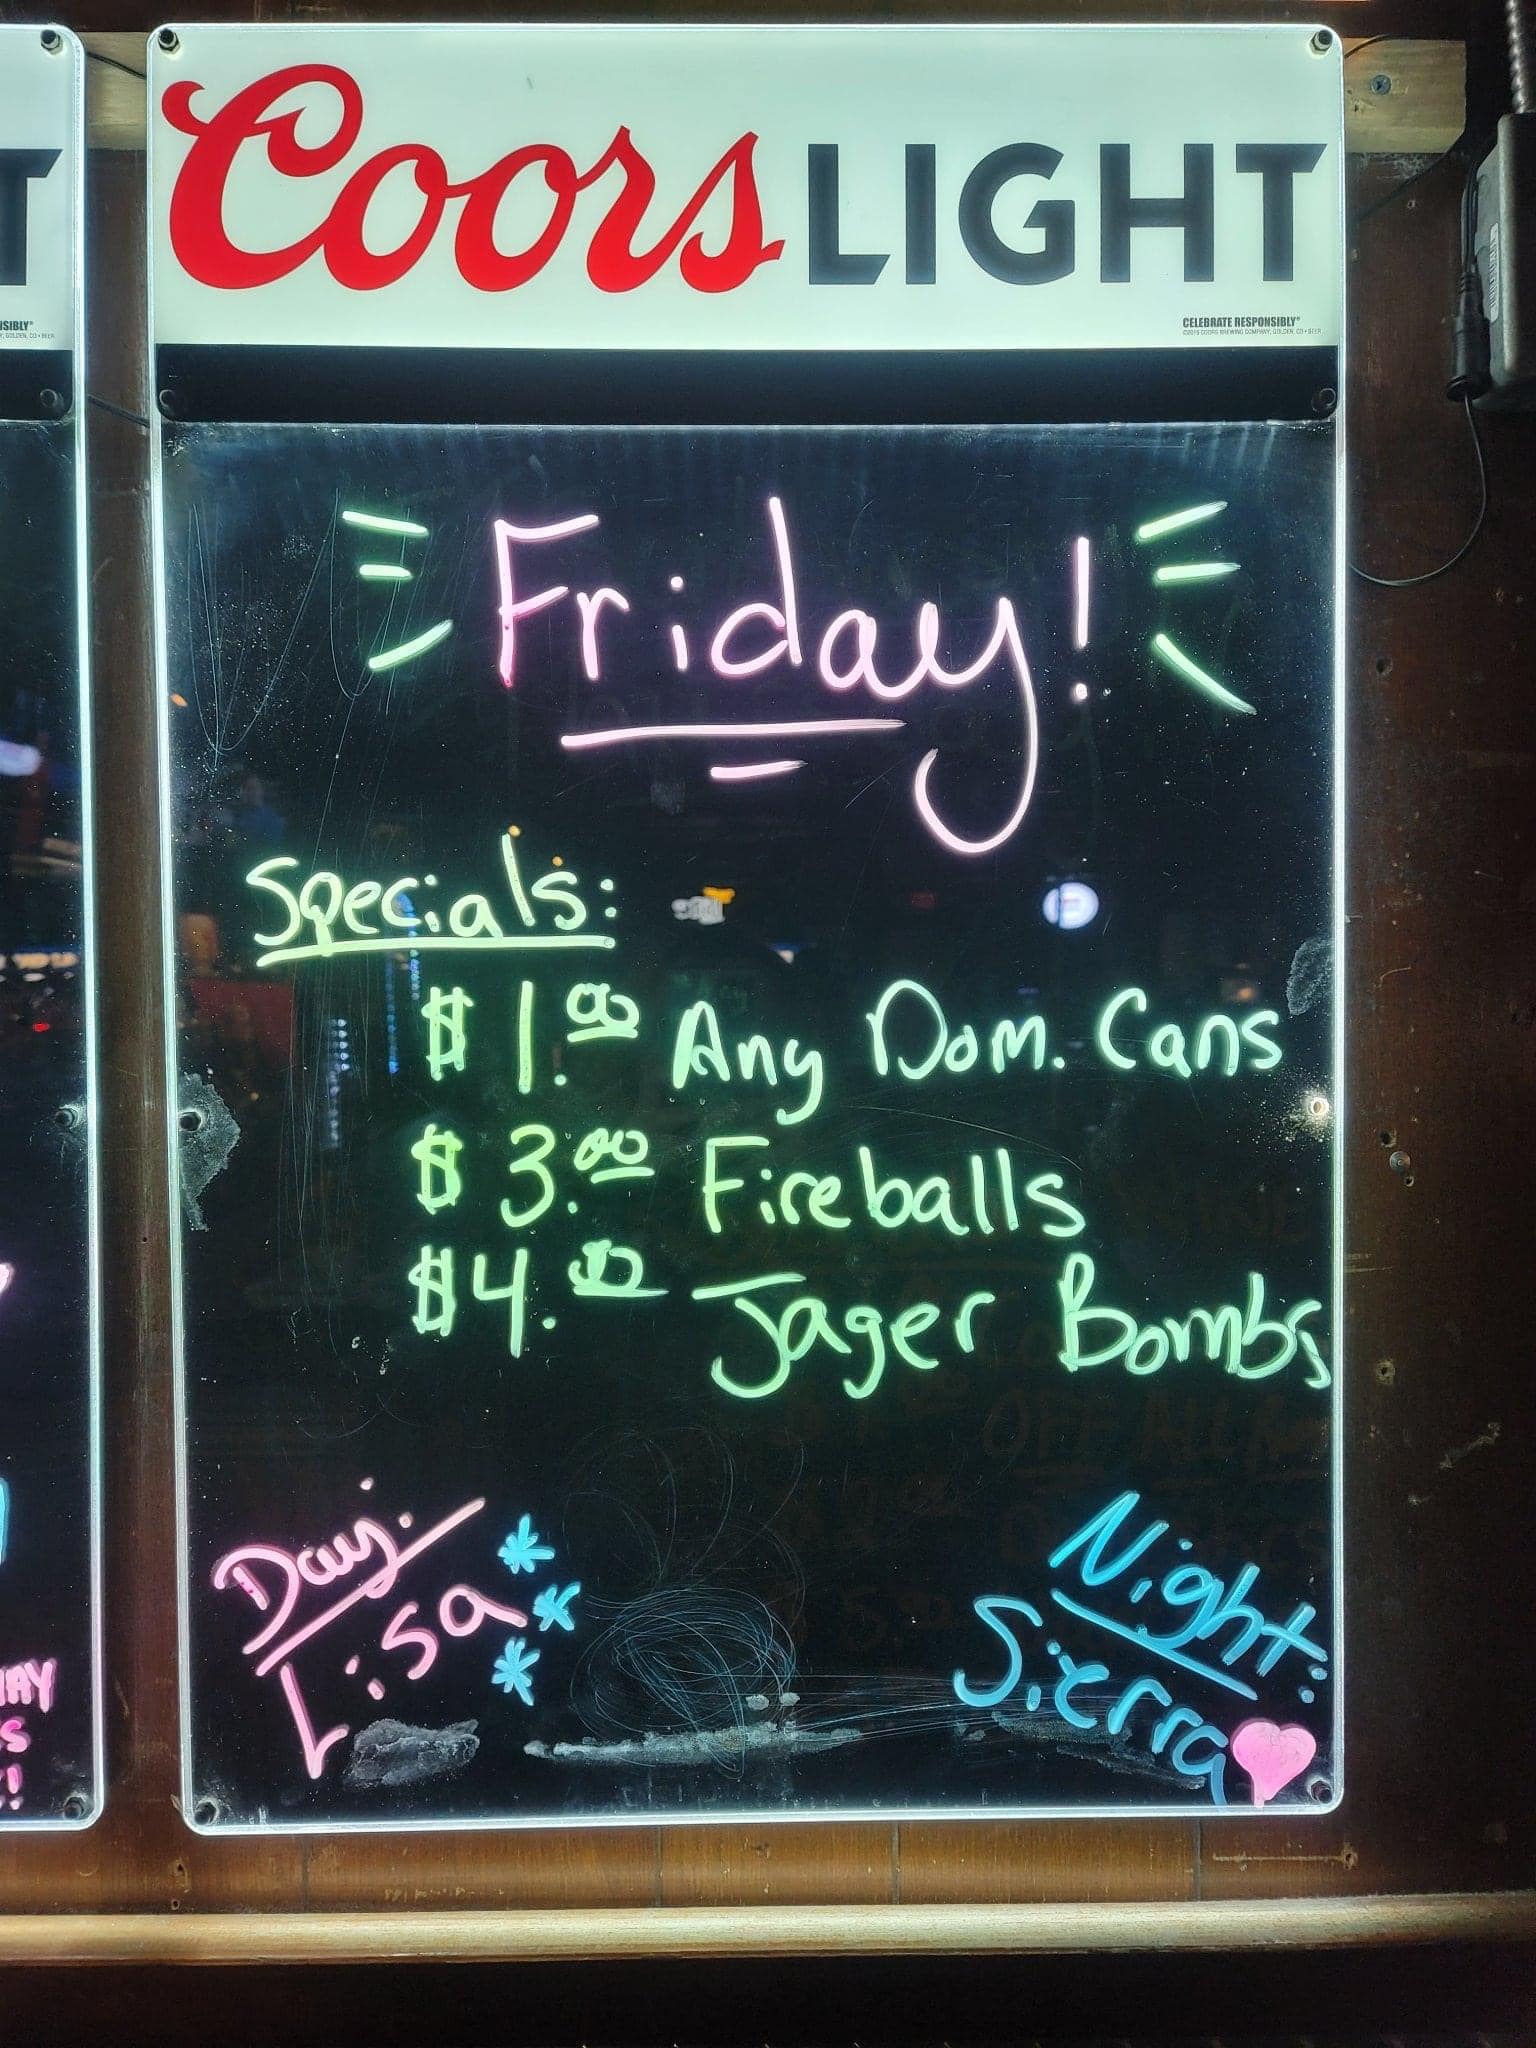 Coors LIGHT
CELEBRATE RESPONSIBLY®
©2015 COORS BREWING COMPANY, GOLDEN, CO • BEER
Friday!
Specials:
$1.00 Any Dom. Cans
$3.00 Fireballs
$4.00 Jager Bombs
Day:
Lisa
Night:
Sierra